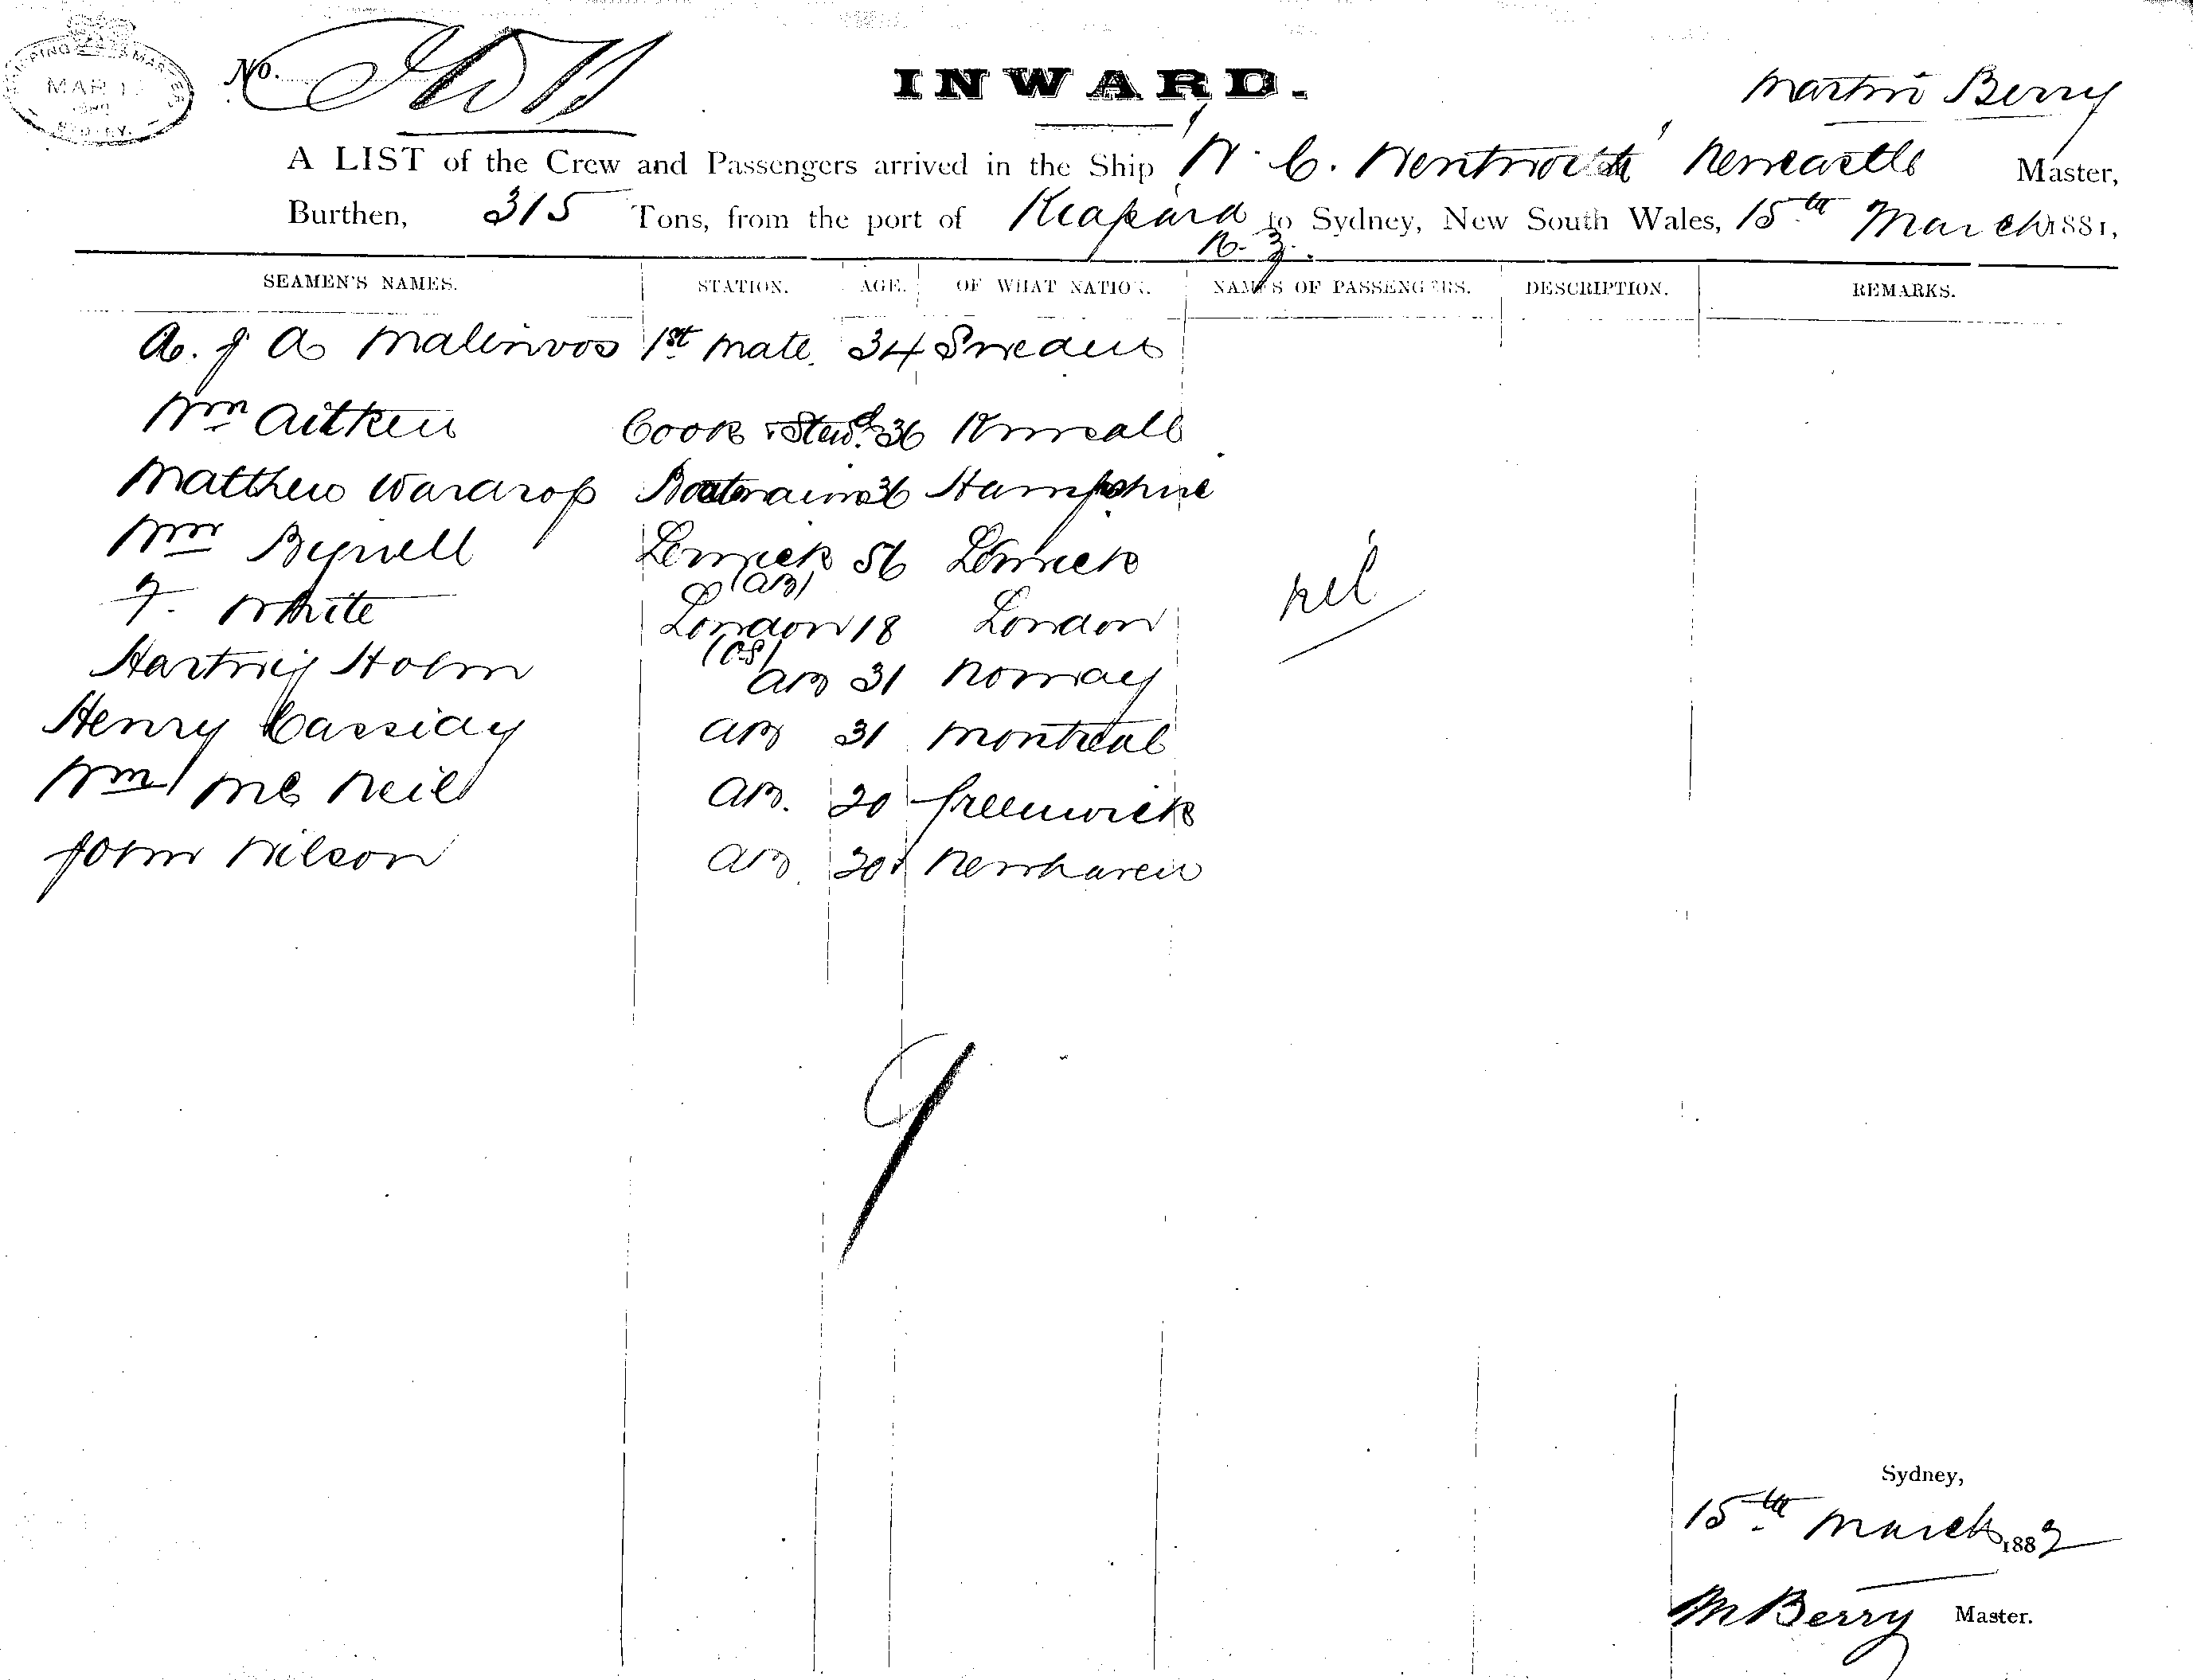 SHIPPING MASTER'S
MAR 1
SYDNEY.
No.
INWARD.
Martin Berry
A LIST of the Crew and Passengers arrived in the Ship "W. C. Wentworth" Newcastle Master,
Burthen, 315 Tons, from the port of Kiapara to Sydney, New South Wales, 15th March 1881,
N. Z.
SEAMEN'S NAMES. STATION. AGE. OF WHAT NATION. NAMES OF PASSENGERS. DESCRIPTION. REMARKS.
A. J A Malinvos 1st Mate. 34 Sweden
Wm Aitken Cook & Stewd. 36
Matthew Wardrop Boatswain 36 Hampshire
Wm Bignell Lerwick 56 Lerwick
(AB)
F. White London 18 London
(OS)
nil
Hartwig Holm AB 31 Norway
Henry Cassidy AB 31 Montreal
Wm Mc Neil AB. 20 Greenwick
John Wilson AB. 20 Newhaven
9
Sydney,
15th March 1882
M Berry Master.